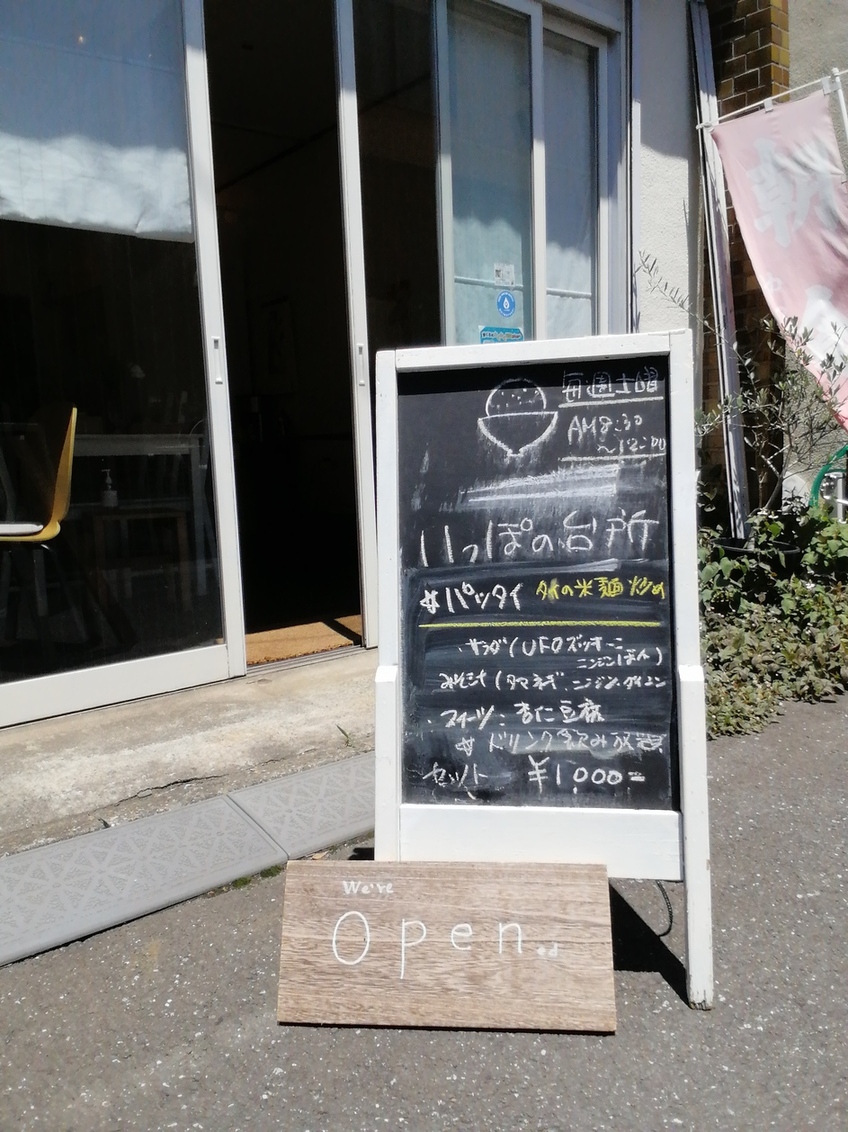 毎週土曜
AM8:30
～12:00
いっぽの台所
#パッタイ タイの米麺炒め
・サラダ(UFOズッキーニ
ニンジンぽん)
みそ汁(タマネギ、ニンジン、ダイコン
・スイーツ:杏仁豆腐
#ドリンク飲み放題
セット ¥1,000-
We're
Open.ed
朝